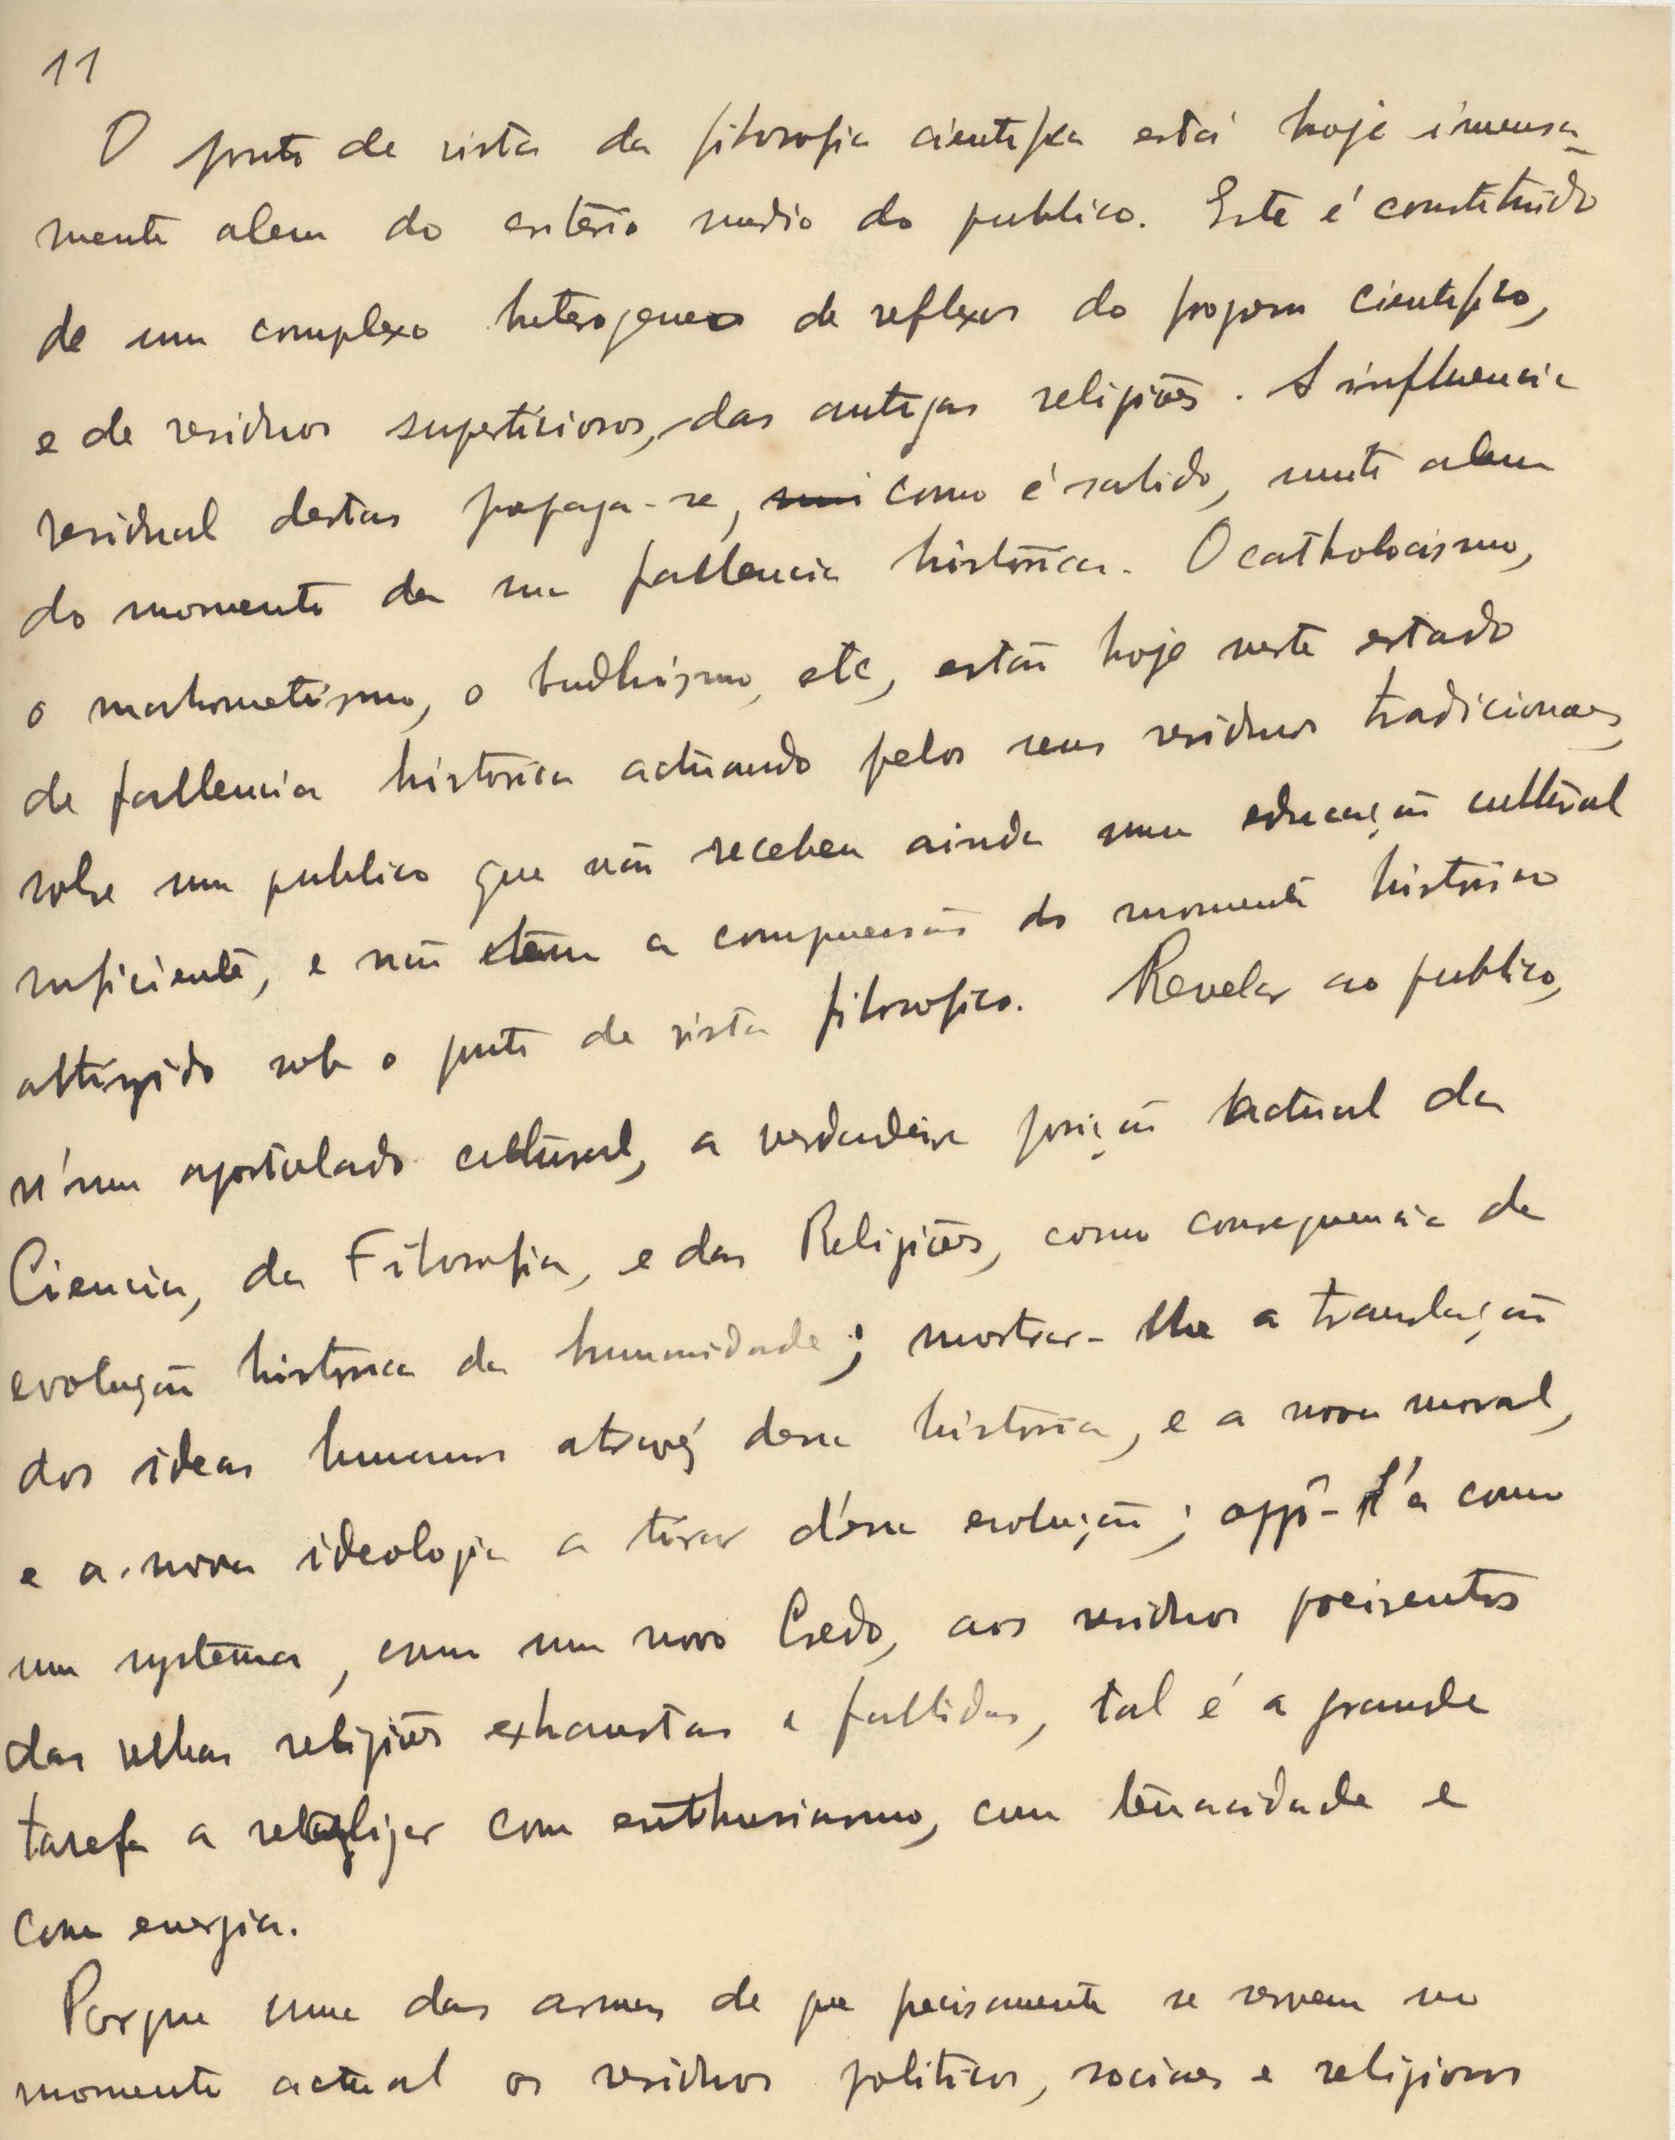 11
O ponto de vista da filosofia cientifica está hoje imensa-
mente alem do criterio medio do publico. Este é constituido
de um complexo heterogeneo de reflexos do progresso cientifico,
e de residuos superticiosos, das antigas religiões. A influencia
residual destas propaga-se, como é sabido, muito alem
do momento da sua fallencia historica. O catholocismo,
o mahometismo, o budhismo, etc, estão hoje neste estado
de fallencia historica actuando pelos seus residuos tradicionaes,
sobre um publico que não recebeu ainda uma educação cultural
suficiente, e não tem a compreensão do momento historico
attingido sob o ponto de vista filosofico. Revelar ao publico,
n'um apostolado cultural, a verdadeira posição actual da
Ciencia, da Filosofia, e das Religiões, como consequencia da
evolução historica da humanidade; mostrar-lhe a translação
dos ideas humanos através dessa historia, e a nova moral,
e a nova ideologia a tirar d'essa evolução; oppô-l'a como
um systema, como um novo Credo, aos residuos persistentes
das velhas religiões exhaustas e fallidas, tal é a grande
tarefa a realizar com enthusiasmo, com tenacidade e
com energia.
Porque uma das armas de que precisamente se servem no
momento actual os residuos politicos, sociaes e religiosos